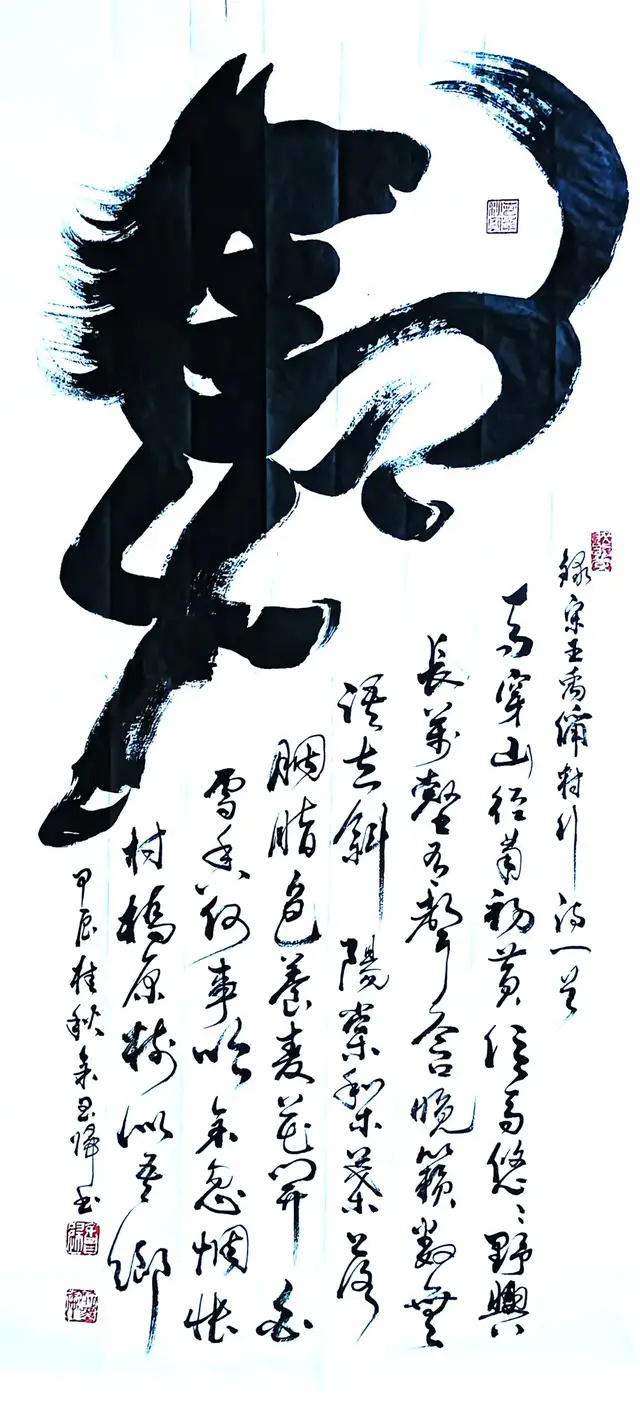 錄宋王禹偁村行詩一首
馬穿山徑菊初黃信馬悠悠野興
長萬壑有聲含晚籟數無
語立斜陽棠梨葉落
胭脂色蕎麥花開白
雪香何事吟余忽惆悵
村橋原樹似吾鄉
甲辰桂秋余書